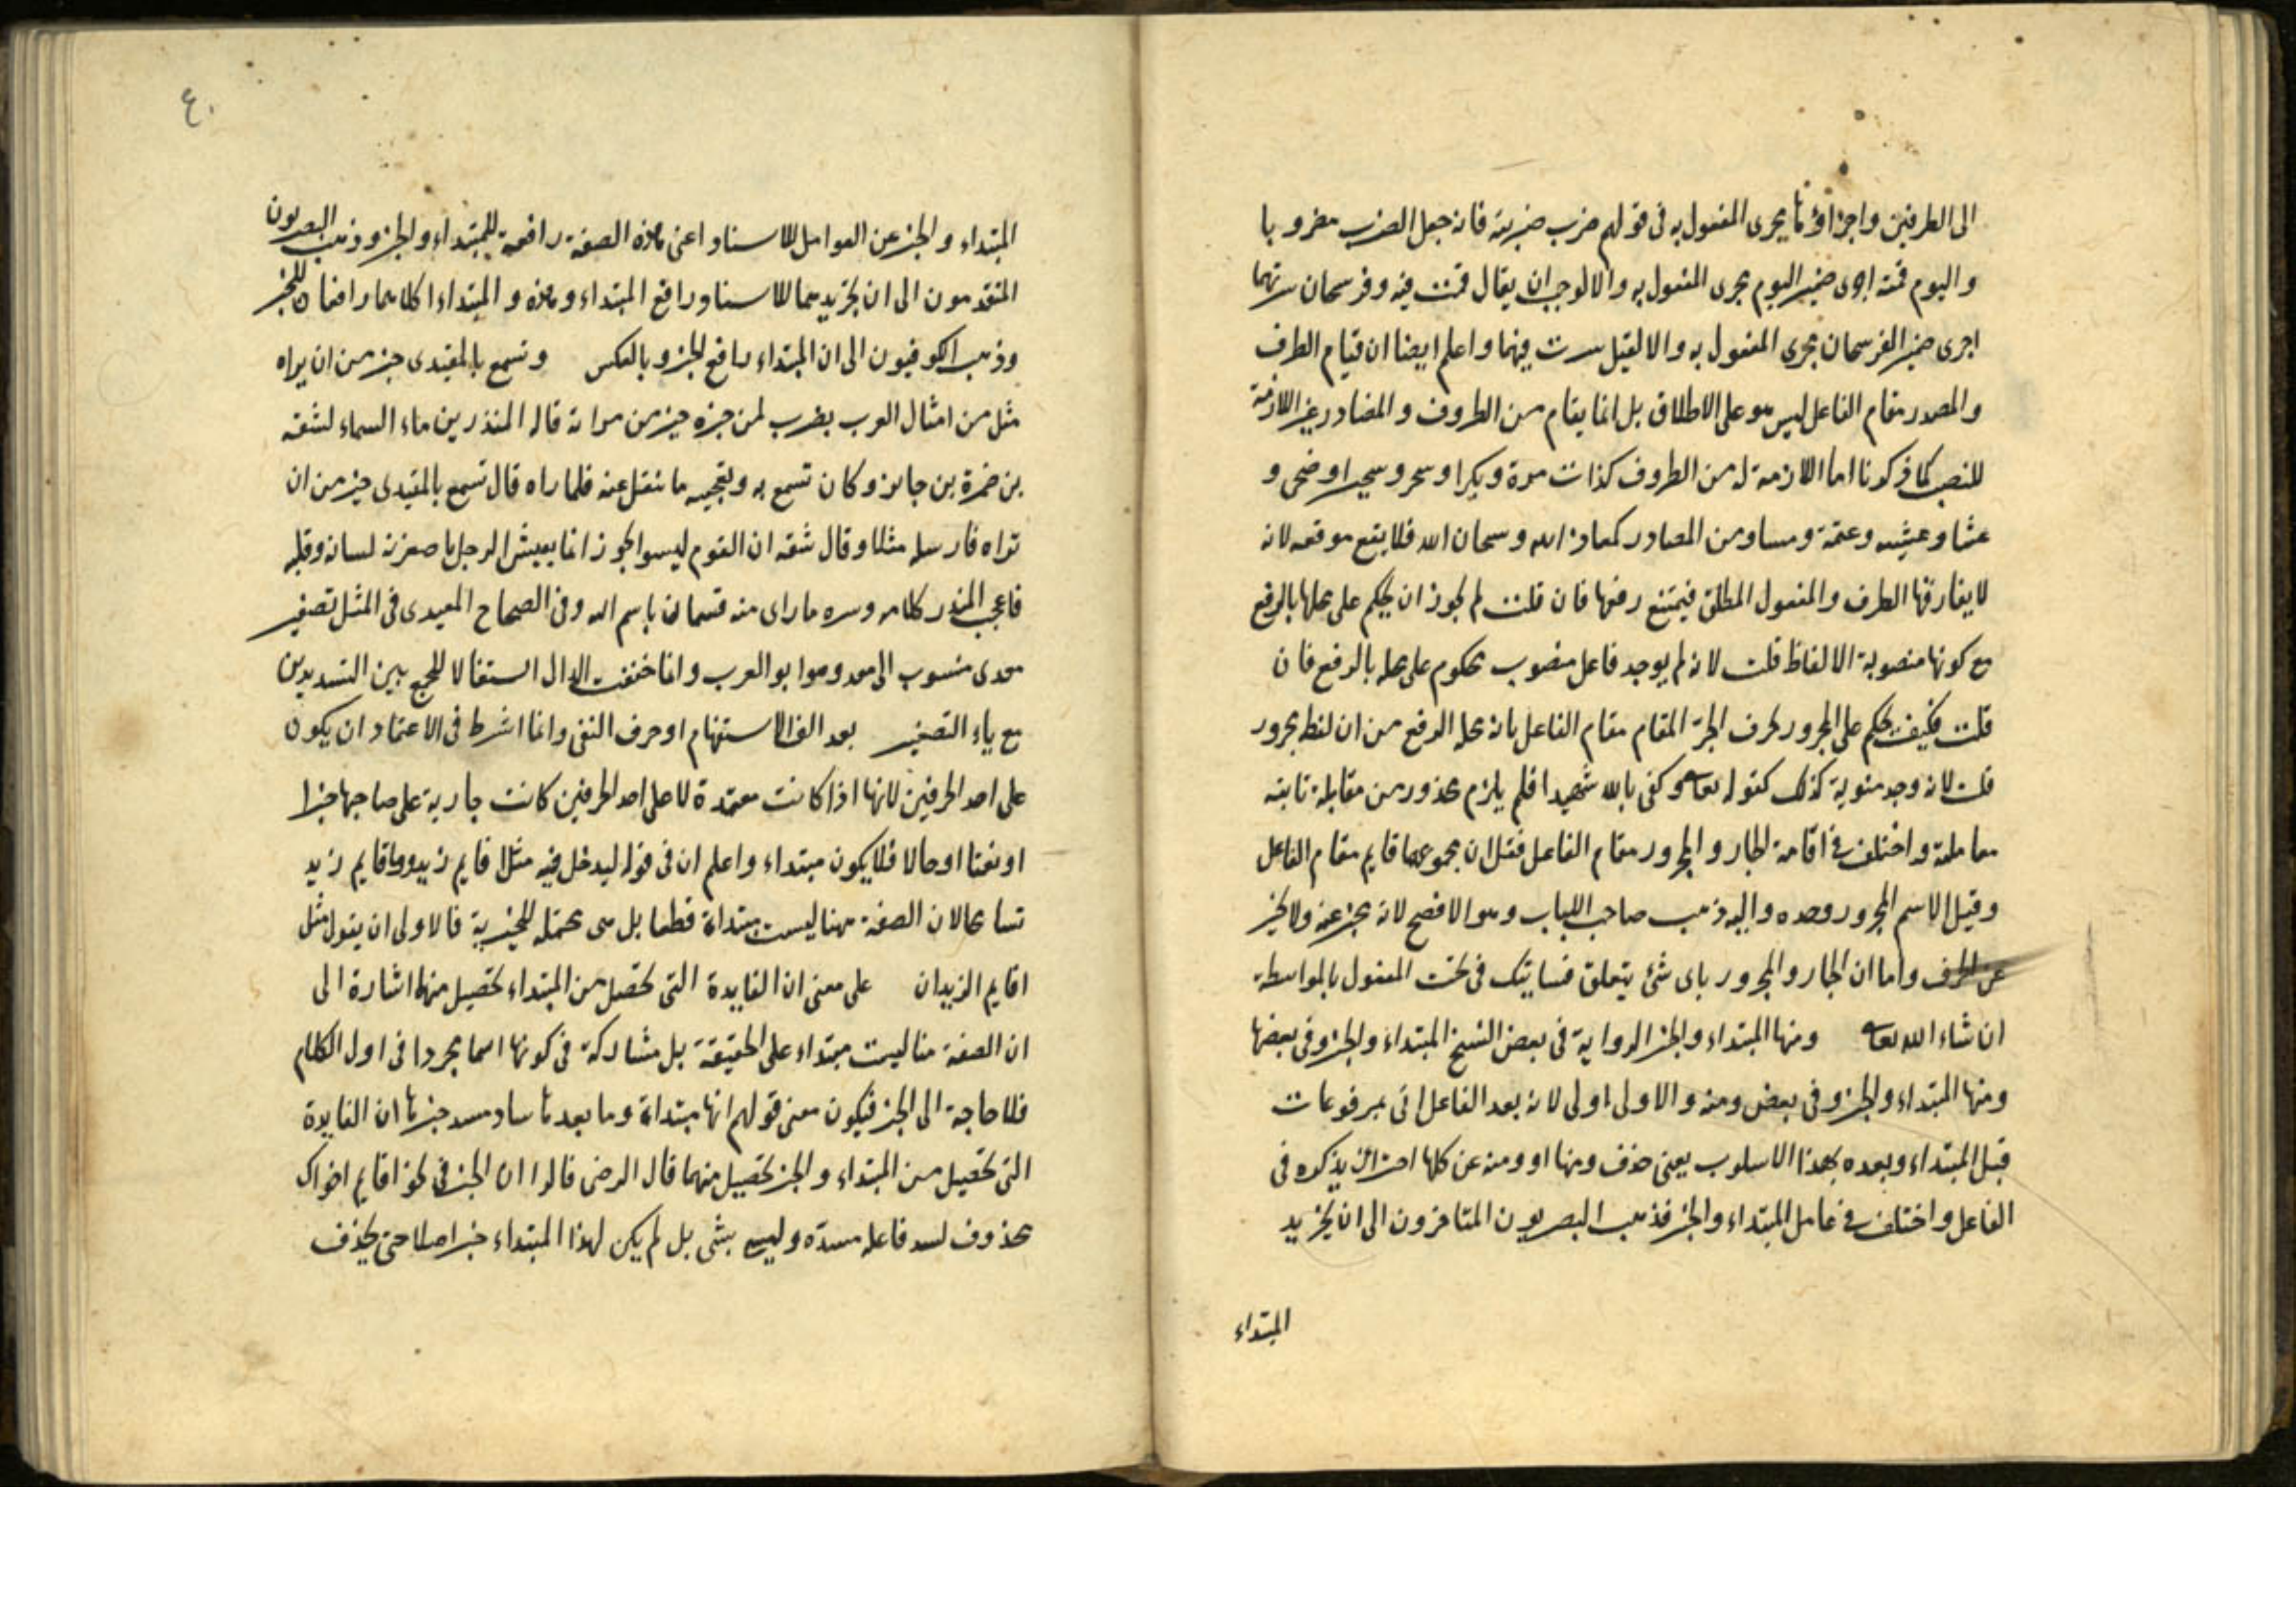 الى الظرفين واجراؤها مجرى المفعول به فى قولهم ضرب ضربته فانه جعل الضرب مضروبا
واليوم قمته اجرى ضمير اليوم مجرى المفعول به والا لوجب ان يقال قمت فيه وفرسخان سرتهما
اجرى ضمير الفرسخان مجرى المفعول به والا لقيل سرت فيهما واعلم ايضا ان قيام الظرف
والمصدر مقام الفاعل ليس هو على الاطلاق بل انما يقام من الظروف والمصادر غير اللازمة
للنصب كما ذكرنا اما اللازمة له من الظروف كذات مرة وبكرا وسحر وسحيرا وضحى و
عشا وعشية وعتمة ومساو من المصادر كمعاذ الله وسبحان الله فلا يقع موقعه لانه
لا يفارقها الظرف والمفعول المطلق فيمتنع رفعها فان قلت لم لايجوز ان يحكم على محلها بالرفع
مع كونها منصوبة الالفاظ قلت لانه لم يوجد فاعل منصوب محكوم على محله بالرفع فان
قلت فكيف يحكم على المجرور بحرف الجر المقام مقام الفاعل بانه محله الرفع من ان لفظه مجرور
قلت لانه وجد كذلك كقوله تعالى وكفى بالله شهيدا فلم يلزم محذور من مقابلة نائبه
معاملته واختلف فى اقامة الجار والمجرور مقام الفاعل فقيل ان مجموعهما قايم مقام الفاعل
وقيل الاسم المجرور وحده واليه ذهب صاحب اللباب وهو الافصح لانه يخبر عنه ولا يخبر
عن الحرف واما ان الجار والمجرور باى شئ يتعلق فسياتيك فى بحث المفعول بالواسطة
ان شاء الله تعالى ومنها المبتداء والخبر الرواية فى بعض النسخ المبتداء والخبر وفى بعضها
ومنها المبتداء والخبر وفى بعض ومنه والاولى اولى لانه بعد الفاعل اتى بمرفوعات
قبل المبتداء وبعده بهذا الاسلوب يعنى حذف ومنها او ومنه عن كلها احترازا يذكره فى
الفاعل واختلف فى عامل المبتداء والخبر فذهب البصريون المتاخرون الى ان تجريد
المبتداء
٤٠
المبتداء والخبر عن العوامل للاسناد اعنى هذه الصفة رافعة للمبتداء والخبر وذهب البصريون
المتقدمون الى ان تجريدهما للاسناد رافع المبتداء وهذه والمبتداء كلاهما رافعان للخبر
وذهب الكوفيون الى ان المبتداء رافع للخبر وبالعكس وتسمع بالمعيدى خير من ان يراه
مثل من امثال العرب يضرب لمن خبره خير من مراته قاله المنذر بن ماء السماء لشقه
بن ضمرة بن جابر وكان تسمع به ويعجبه ما ينقل عنه فلما راه قال تسمع بالمعيدى خير من ان
تراه فارسله مثلا وقال شقه ان القوم ليسوا بجوز انما يعيش الرجل باصغريه لسانه وقلبه
فاعجب المنذر كلامه وسره ما راى منه فسماه باسم الله وفى الصحاح المعيدى فى المثل تصغير
معدى منسوب الى معد وهو ابو العرب وانما خففت الدال استثقالا للجمع بين التشديدين
مع ياء التصغير بعد الف الاستفهام او حرف النفى وانما اشرط فى الاعتماد ان يكون
على احد الحرفين لانها اذا كانت معتمدة لا على احد الحرفين كانت جارية على صاحبها خبرا
او نعتا او حالا فلا يكون مبتداء واعلم ان فى قوله ليدخل فيه مثلا قايم زيد وما قايم زيد
تسامحا لان الصفة ههنا ليست مبتداة قطعا بل هى محتمله للخبرية فالاولى ان يقول مثل
اقايم الزيدان على معنى ان الفايدة التى تحصل من المبتداء تحصيل منها اشارة الى
ان الصفة هنا ليست مبتداء على الحقيقة بل مشاركة فى كونها اسما مجردا فى اول الكلام
فلا حاجة الى الخبر فيكون معنى قولهم انها مبتداة وما بعدها ساد مسد خبرها ان الفايدة
التى تحصيل من المبتداء والخبر تحصيل منهما قال الرضى قالوا ان الخبر فى نحو اقايم اخواك
محذوف لسد فاعله مسده وليس بشى بل لم يكن لهذا المبتداء خبر اصلا حتى يحذف